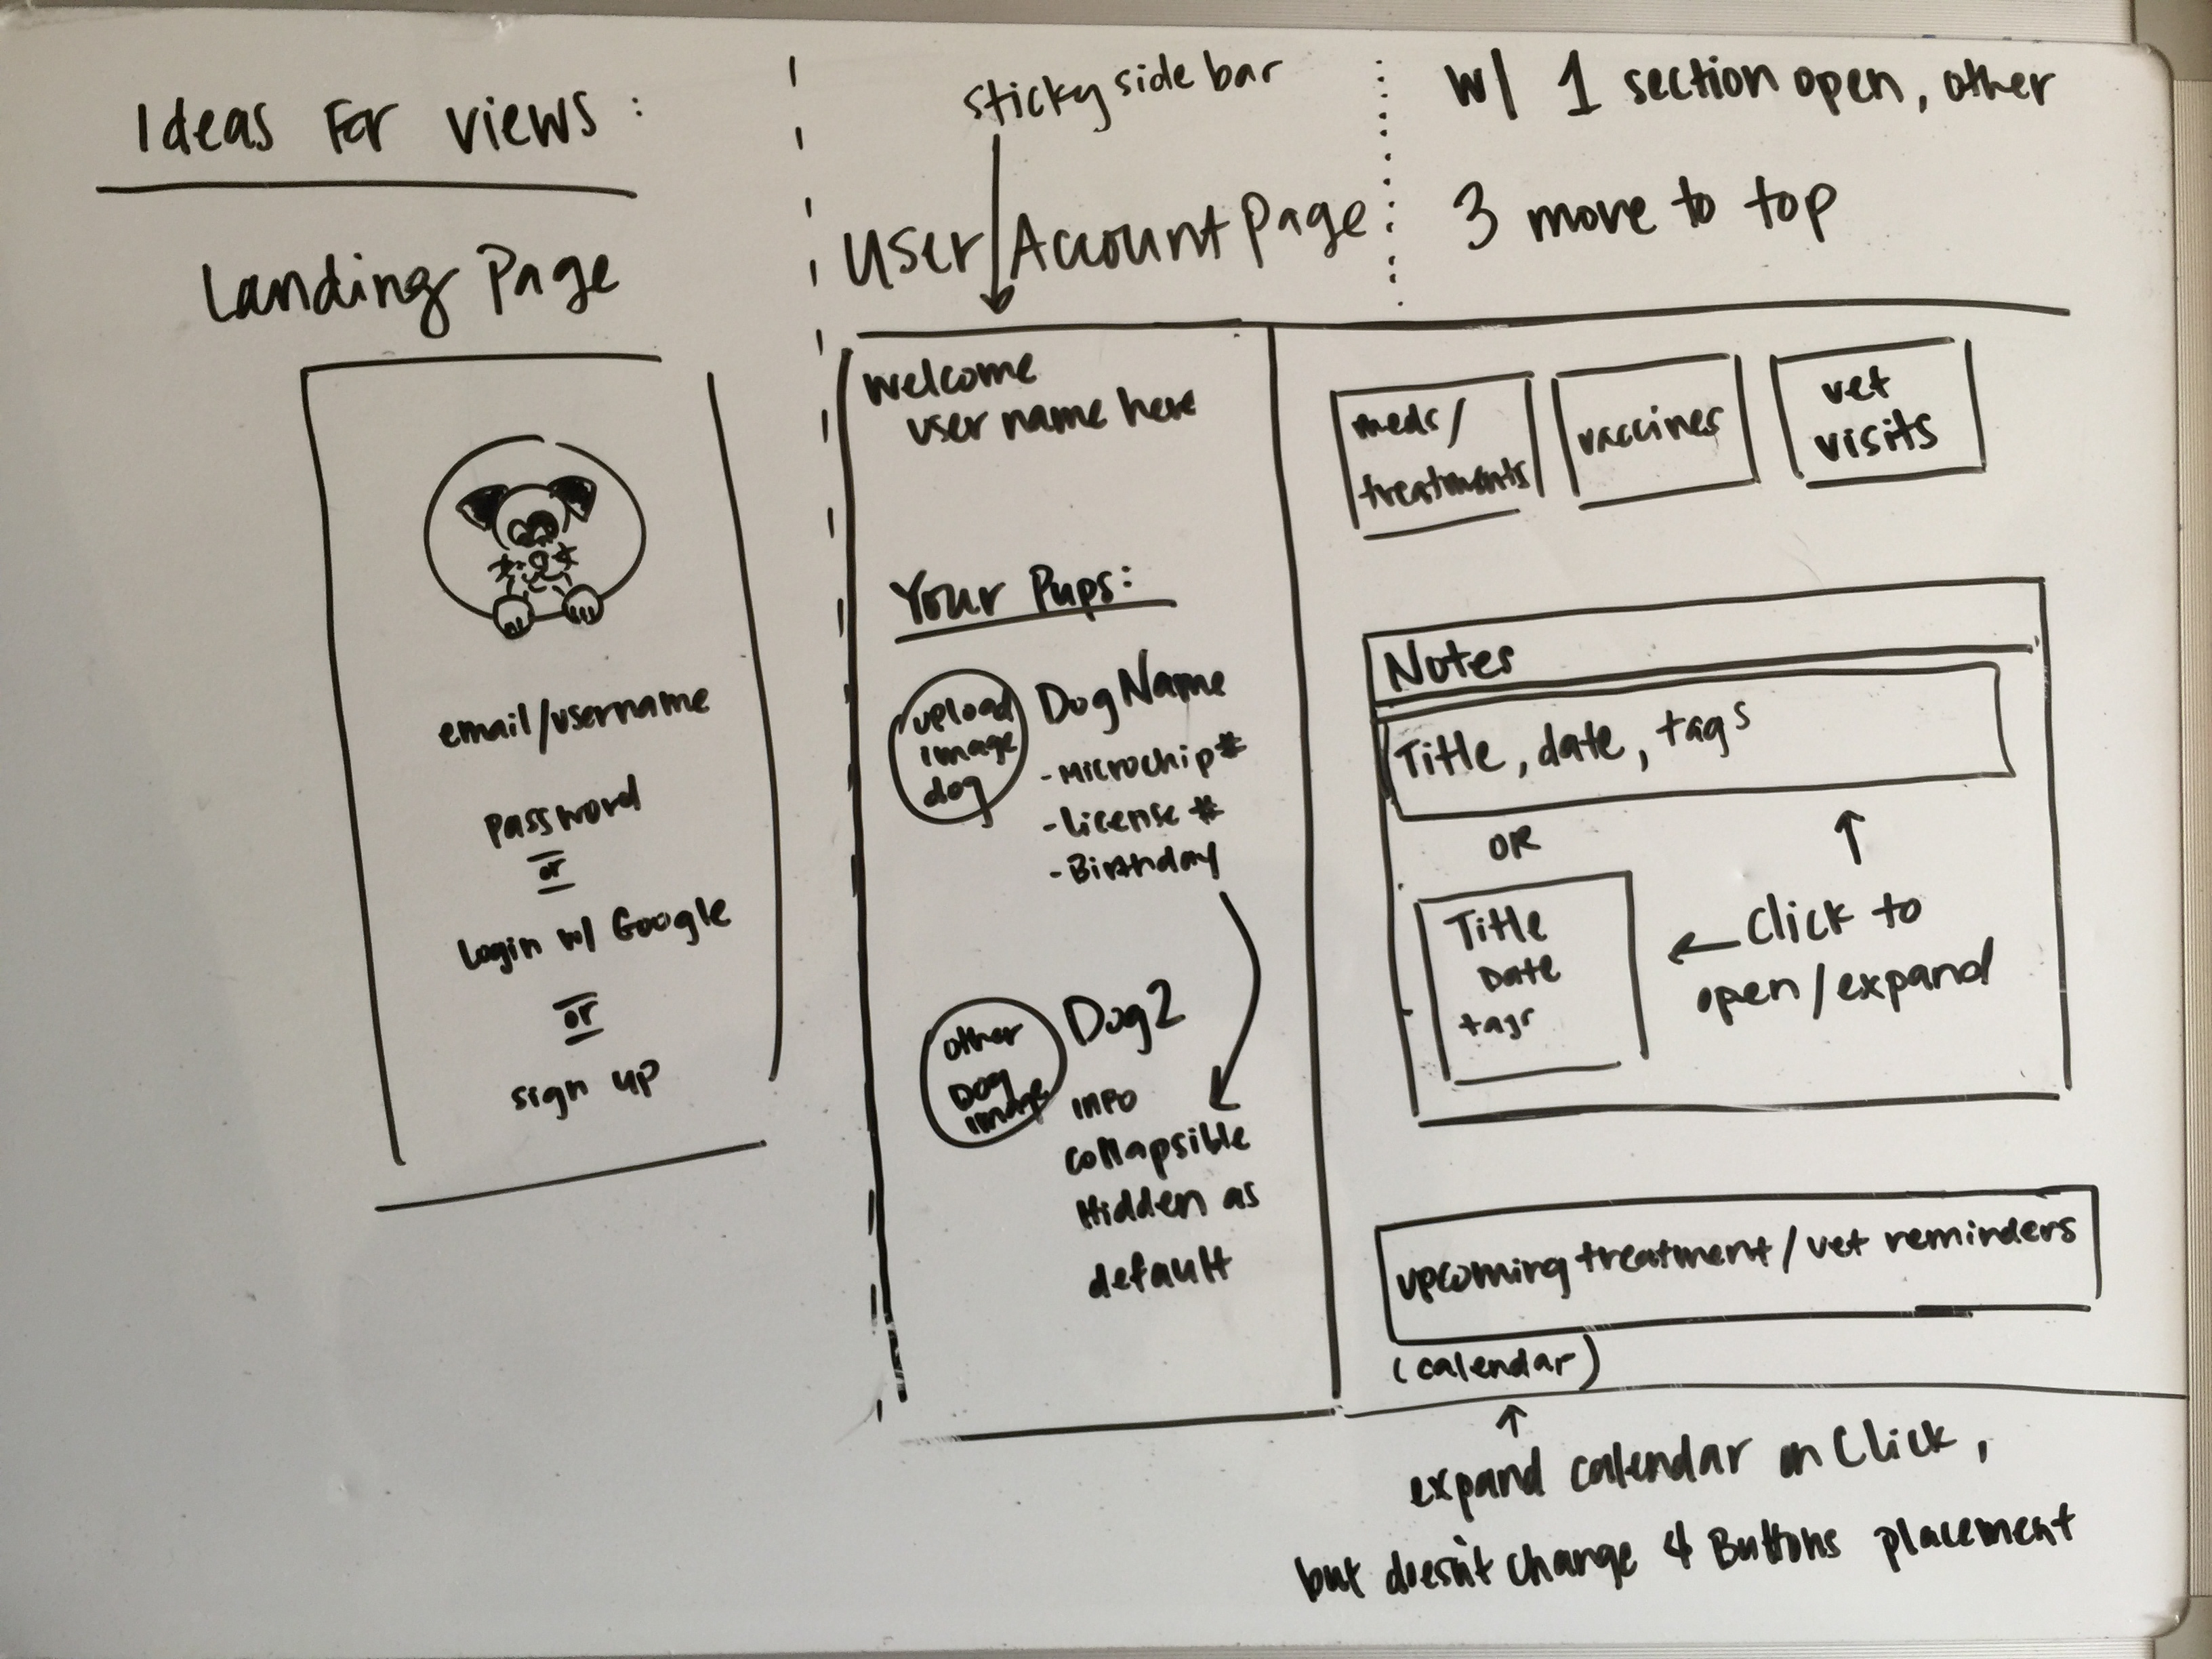 Ideas For views:
Landing Page
email/username
password
or
Login w/ Google
or
sign up
sticky side bar
User/Account Page
welcome
user name here
Your Pups:
upload
image
dog
Dog Name
- Microchip #
- License #
- Birthday
other
Dog
image
Dog 2
INFO
collapsible
Hidden as
default
w/ 1 section open, other
3 move to top
meds/
treatments
vaccines
vet
visits
Notes
Title, date, tags
OR
Title
Date
tags
Click to
open/expand
upcoming treatment/vet reminders
(calendar)
expand calendar on Click,
but doesn't change 4 Buttons placement